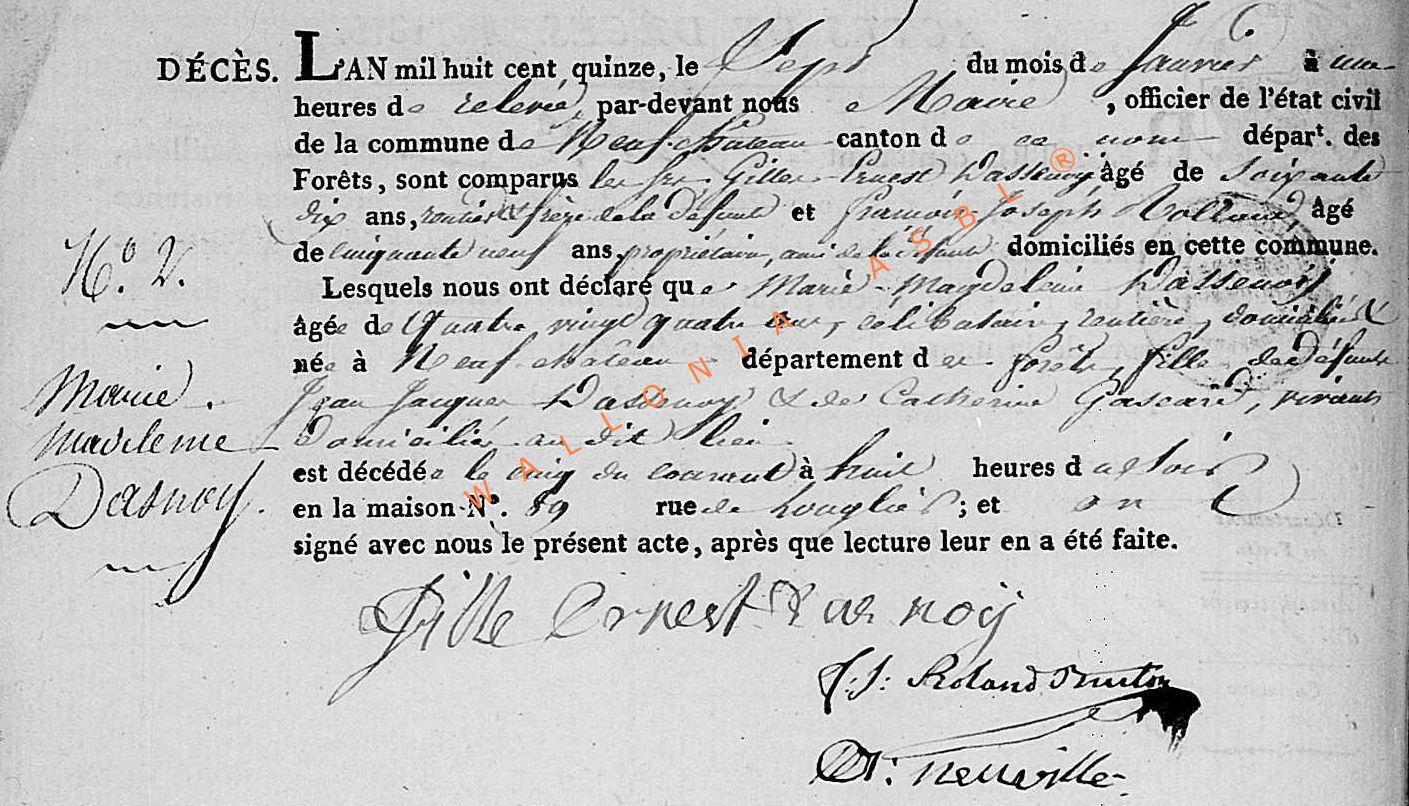 DÉCÈS. L'AN mil huit cent quinze, le Sept du mois de Janvier à une
heures de relevée, par-devant nous Maire, officier de l'état civil
de la commune de Neufchâteau canton de ce nom départ. des
Forêts, sont comparus les srs Gilles Ernest Dassenoy âgé de Soixante
dix ans, rentier & frère de la défunte et François Joseph Rolland, âgé
de cinquante neuf ans, propriétaire, ami de la défunte domiciliés en cette commune.
N.o 2.
Lesquels nous ont déclaré que Marie Magdeleine Dassenoy
âgée de Quatre vingt quatre ans, célibataire, rentière, domiciliée &
née à Neufchâteau département des forêts, fille de défunts
Marie
Jean Jacques Dassenoy & de Catherine Gascard, vivants
Madeleine
domiciliés au dit lieu
est décédée le cinq du courant à huit heures du soir
Dasnoy.
en la maison N.o 89 rue de ; et ont
signé avec nous le présent acte, après que lecture leur en a été faite.
Gille Ernest Dasnoij
F: J: Roland
Dt: neuville
WALLONIA ASBL ®